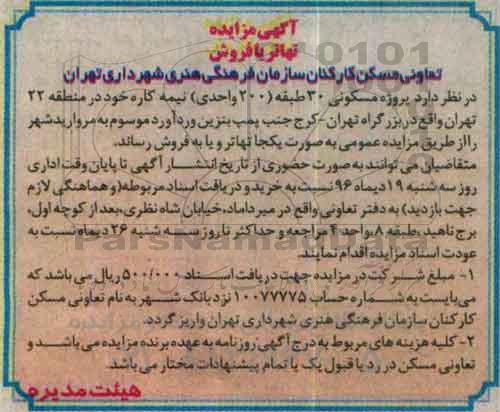 آگهی مزایده
تهاتر یا فروش
تعاونی مسکن کارکنان سازمان فرهنگی هنری شهرداری تهران
در نظر دارد پروژه مسکونی ۳۰ طبقه (۲۰۰ واحدی) نیمه کاره خود در منطقه ۲۲
تهران واقع در بزرگراه تهران-کرج جنب پمپ بنزین وردآورد موسوم به مروارید شهر
را از طریق مزایده عمومی به صورت یکجا تهاتر و یا به فروش رساند.
متقاضیان می توانند به صورت حضوری از تاریخ انتشار آگهی تا پایان وقت اداری
روز سه شنبه ۱۹ دیماه ۹۶ نسبت به خرید و دریافت اسناد مربوطه (و هماهنگی لازم
جهت بازدید) به دفتر تعاونی واقع در میرداماد، خیابان شاه نظری، بعد از کوچه اول،
برج ناهید، طبقه ۸، واحد ۴ مراجعه و حداکثر تا روز سه شنبه ۲۶ دیماه نسبت به
عودت اسناد مزایده اقدام نمایند.
۱- مبلغ شرکت در مزایده جهت دریافت اسناد ۵۰۰/۰۰۰ ریال می باشد که
می بایست به شماره حساب ۱۰۰۷۷۷۷۵ نزد بانک شهر به نام تعاونی مسکن
کارکنان سازمان فرهنگی هنری شهرداری تهران واریز گردد.
۲- کلیه هزینه های مربوط به درج آگهی روزنامه به عهده برنده مزایده می باشد و
تعاونی مسکن در رد یا قبول یک یا تمام پیشنهادات مختار می باشد.
هیئت مدیره
ParsNamadData